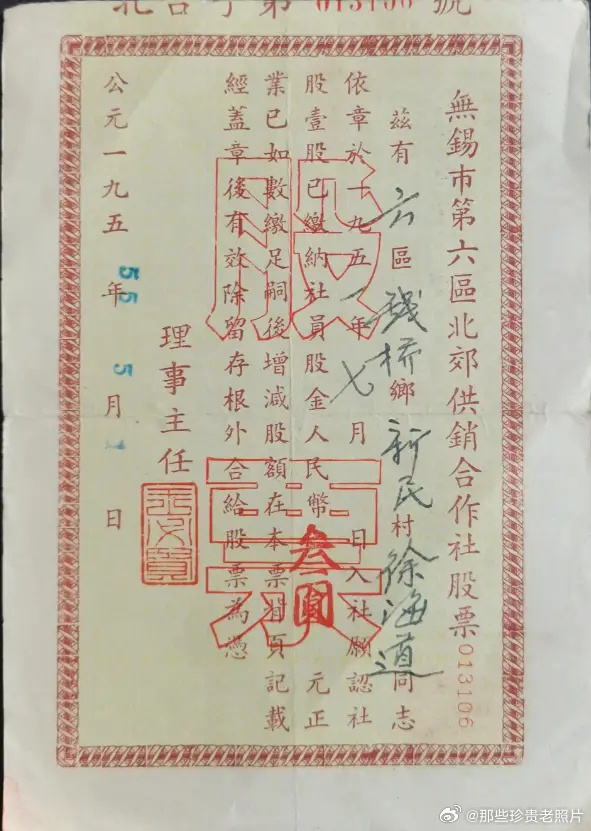 北合字第 013106 號
無錫市第六區北郊供銷合作社股票 013106
茲有六區 橋鄉新民村徐海道同志
依章於一九五一年七月 日入社願認社
股壹股已繳納社員股金人民幣叁圓元正
業已如數繳足嗣後增減股額在本票背頁記載
經蓋章後有效除留存根外合給股票為憑
理事主任
公元一九五55年5月1日
股票
@那些珍贵老照片